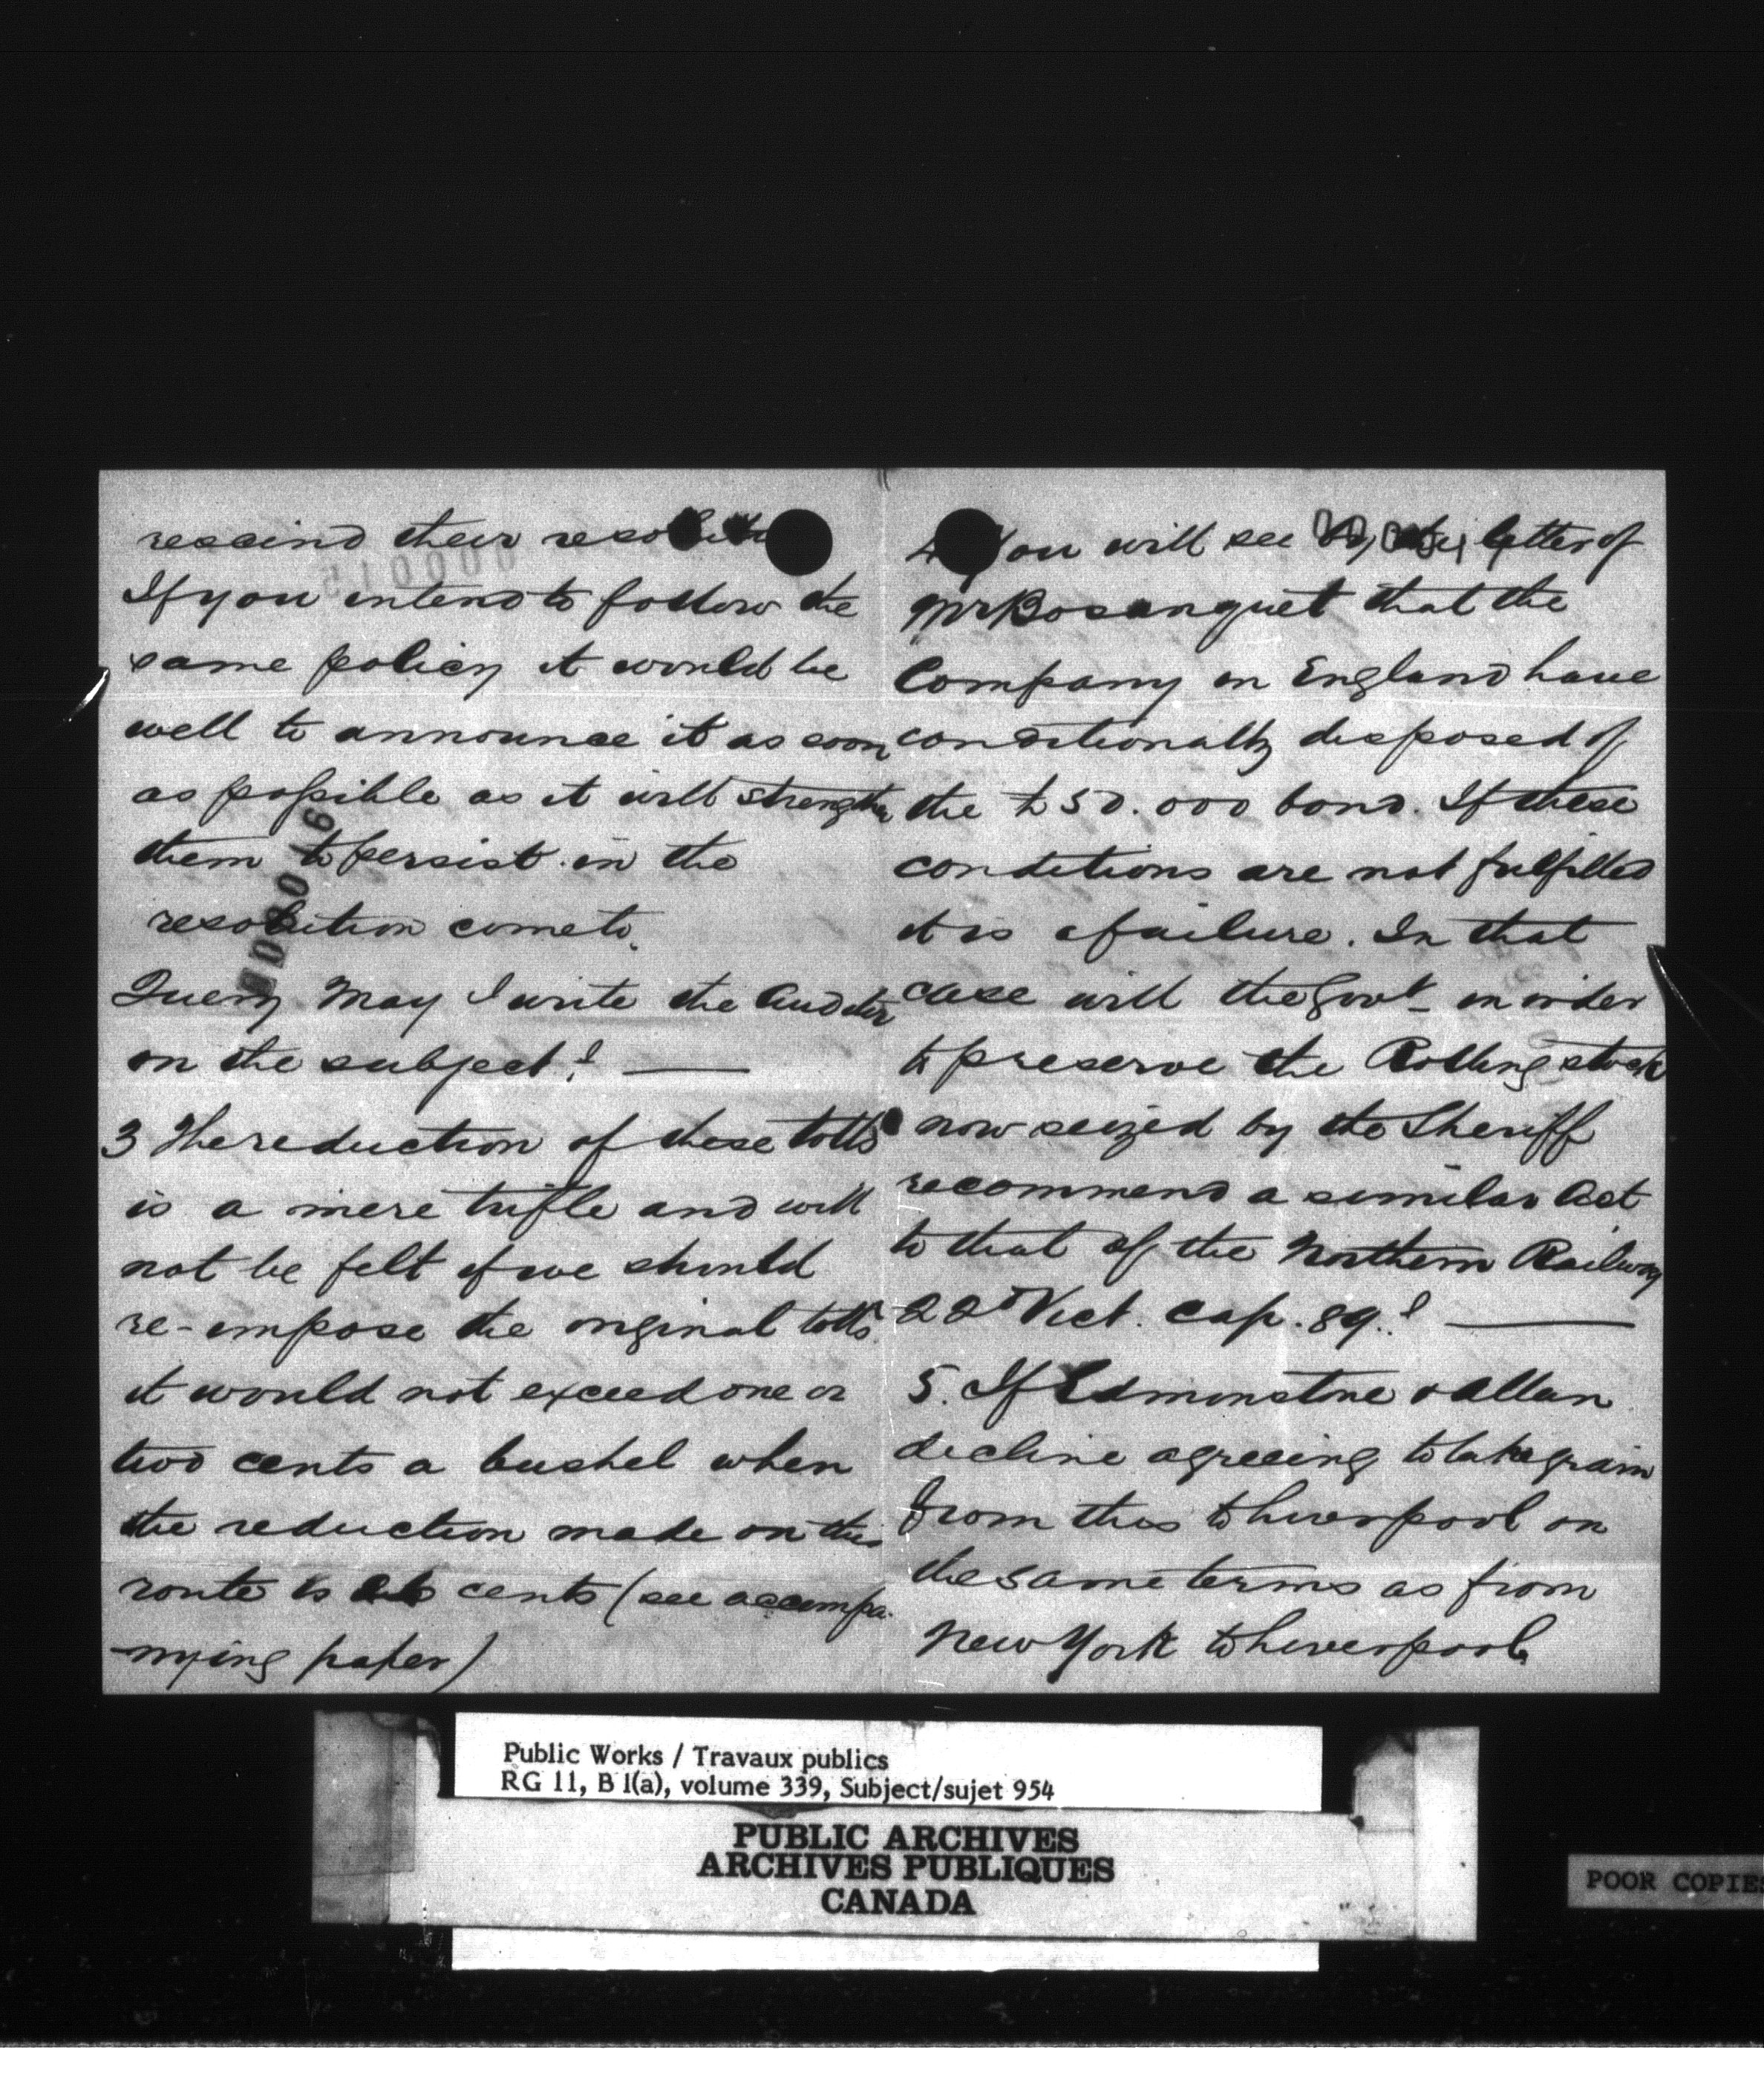 rescind their
If you intend to follow the
same policy it would be
well to announce it as soon
as possible as it will strengthen
them to persist in the
resolution come to.
Query May I write the Auditor
on the subject? —
3 The reduction of these tolls
is a mere trifle and will
not be felt if we should
re-impose the original tolls.
it would not exceed one or
two cents a bushel when
the reduction made on this
route is cents (see accompa-
-nying paper)
4 You will see by the letter of
Mr Bosanquet that the
Company in England have
conditionally disposed of
the £50.000 bond. If these
conditions are not fulfilled
it is a failure. In that
case will the Govt in order
to preserve the Rolling stock
now seized by the Sheriff
recommend a similar Act
to that of the Northern Railway
22d Vict. Cap. 89.? —
5. If Edmonstone & Allan
decline agreeing to take grain
from this to Liverpool on
the same terms as from
New York to Liverpool
000015
000016
Public Works / Travaux publics
RG 11, B 1(a), volume 339, Subject/sujet 954
PUBLIC ARCHIVES
ARCHIVES PUBLIQUES
CANADA
POOR COPIES